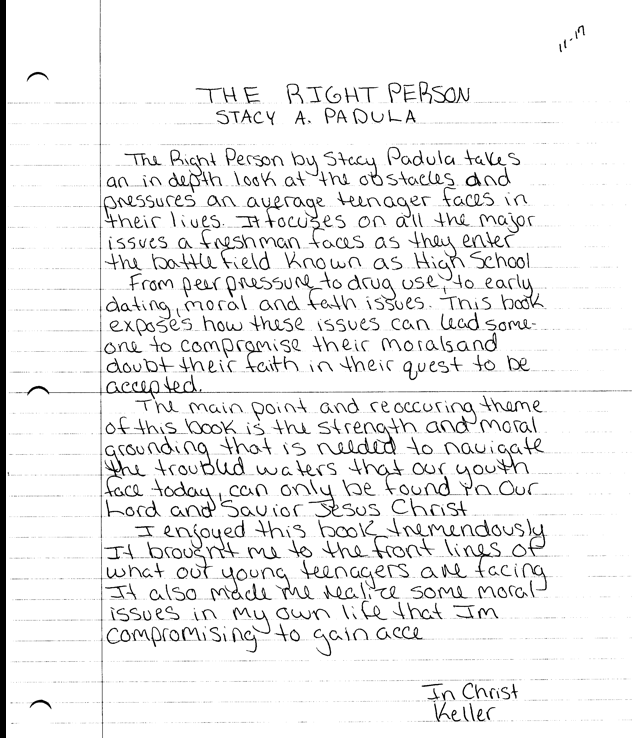 11-17
THE RIGHT PERSON
STACY A. PADULA
The Right Person by Stacy Padula takes
an in depth look at the obstacles and
pressures an average teenager faces in
their lives. It focuses on all the major
issues a freshman faces as they enter
the battle field known as High School
From peer pressure to drug use, to early
dating, moral and fath issues. This book
exposes how these issues can lead some-
one to compromise their morals and
doubt their faith in their quest to be
accepted.
The main point and reoccuring theme
of this book is the strength and moral
grounding that is needed to navigate
the troubled waters that our youth
face today, can only be found in Our
Lord and Savior Jesus Christ
I enjoyed this book tremendously
It brought me to the front lines of
what our young teenagers are facing
It also made me realize some moral
issues in my own life that Im
compromising to gain acce
In Christ
Keller